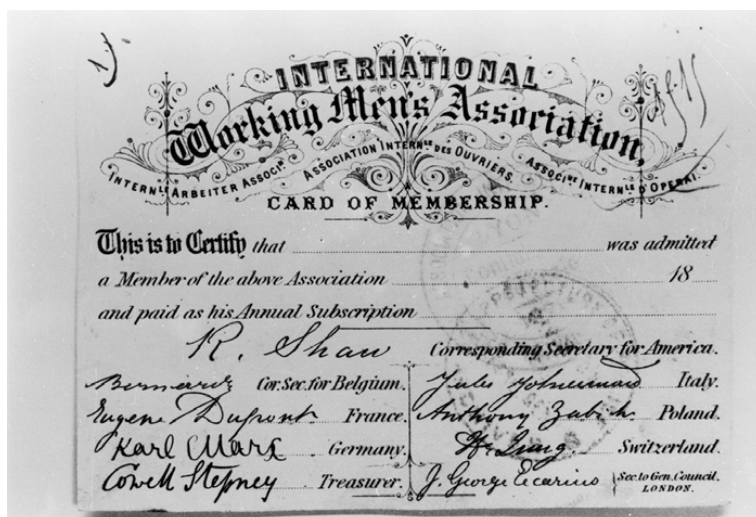 INTERNATIONAL
Working Men's Association,
INTERN^LE ARBEITER ASSOC^N. ASSOCIATION INTERN^LE DES OUVRIERS. ASSOC^NE INTERN^LE D'OPERAI.
CARD OF MEMBERSHIP.
This is to Certify that was admitted
a Member of the above Association 18
and paid as his Annual Subscription
R. Shaw Corresponding Secretary for America.
Bernard Cor. Sec. for Belgium. Jules Johannard Italy.
Eugene Dupont France. Anthony Zabicki Poland.
Karl Marx Germany. H. Jung Switzerland.
Cowell Stepney Treasurer. J. George Eccarius Sec. to Gen. Council.
LONDON.